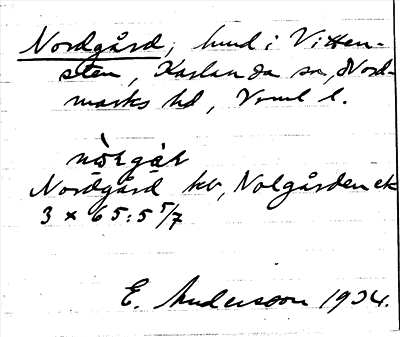 Nordgård, hmd i Vitten-
sten, Karlanda sn, Nord-
marks hd, Vrml l.
nòrgàr
Nordgård kb, Nolgården ek
3 × 65:5 5/7
E. Andersson 1934.